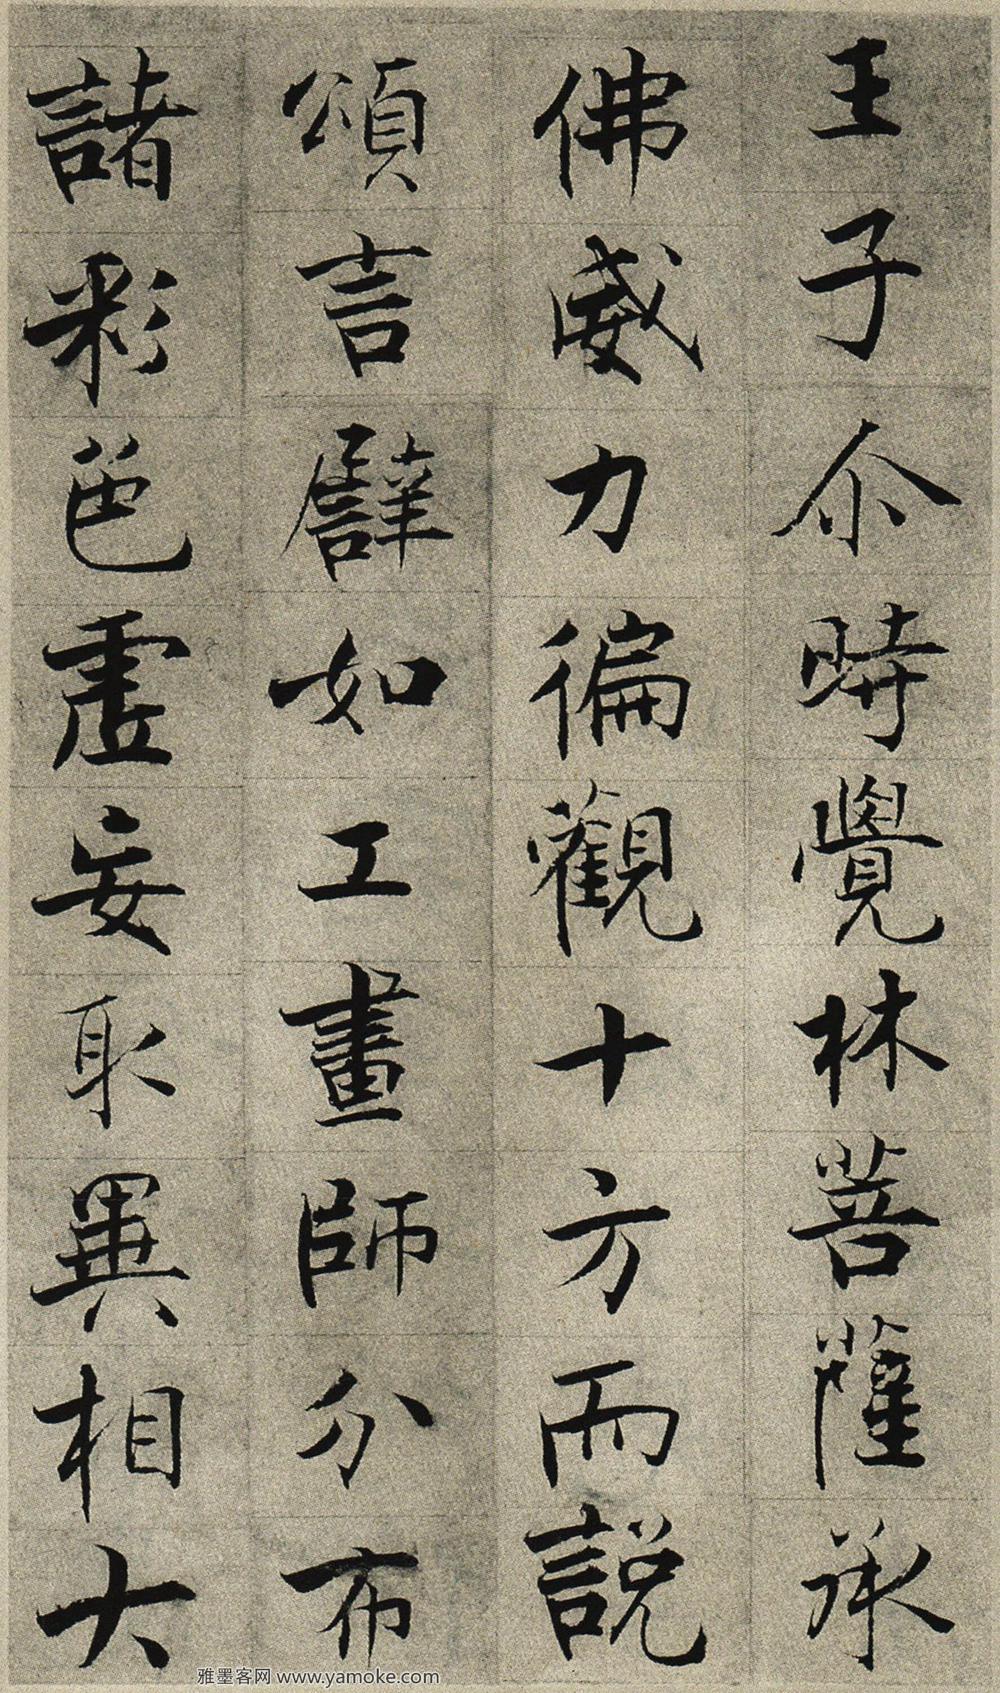 王子尒時覺林菩薩承
佛威力徧觀十方而說
頌言譬如工畫師分布
諸彩色虛妄取異相大
雅墨客网 www.yamoke.com